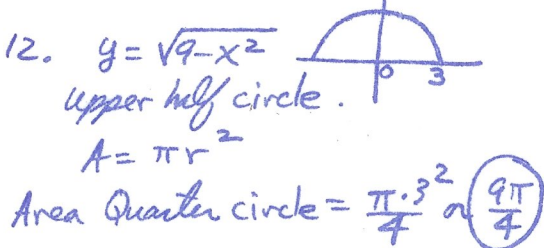 12. y = √9-x²
0 3
upper half circle.
A = πr²
Area Quarter circle = π·3²/4 or 9π/4